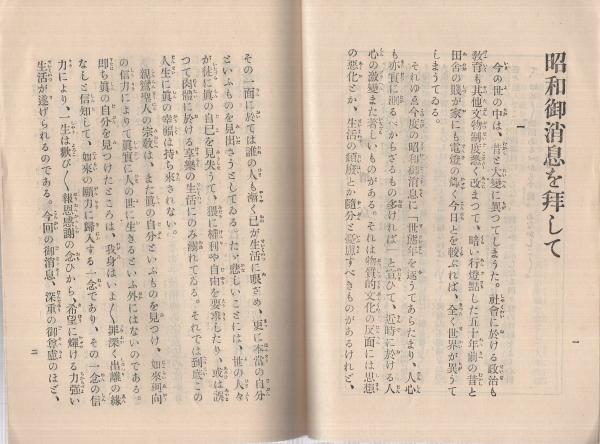 昭和御消息を拜して
一
今の世の中は、昔と大變に異つてしまうた。社會に於ける政治も
敎育も其他文物制度悉く改まつて、暗い行燈點した五十年前の昔と
田舍の賤が家にも電燈の煌く今日とを較ぶれば、全く世界が異うて
しまうてゐる。
それゆゑ今度の『昭和御消息』に「世態年を逐うてあらたまり、人心
も亦實に測るべからざるもの多ければ」と宣ひて、近時に於ける人
心の激變また著しいものがある。それは物質的文化の反面には思想
の惡化とか、生活の頽廢とか隨分と憂慮すべきものがあるけれど、
一
その一面に於ては誰の人も漸く己が生活に眼ざめ、更に本當の自分
といふものを見出さうとしてゐる。たゞ悲しいことには、世の人々
が徒に眞の自己を見失うて、猥に權利や自由を要求したり、或は誤
つて肉體に於ける享樂の生活にのみ溺れてゐる。それでは到底この
人生に眞の幸福は持ち來されない。
親鸞聖人の宗敎は、また眞の自分といふものを見つけ、如來廻向
の信力によりて眞實に人の世に生きるといふ外にはないのである。
卽ち眞の自分を見つけたところは、我身はいよ〱罪深く出離の緣
なしと信知して、如來の願力に歸入する一念であり、その一念の信
力により、一生は歡び〱報恩感謝の念ひから、希望に輝ける力强い
生活が遂げられるのである。今回の御消息、深重の御尊慮のほど、
二